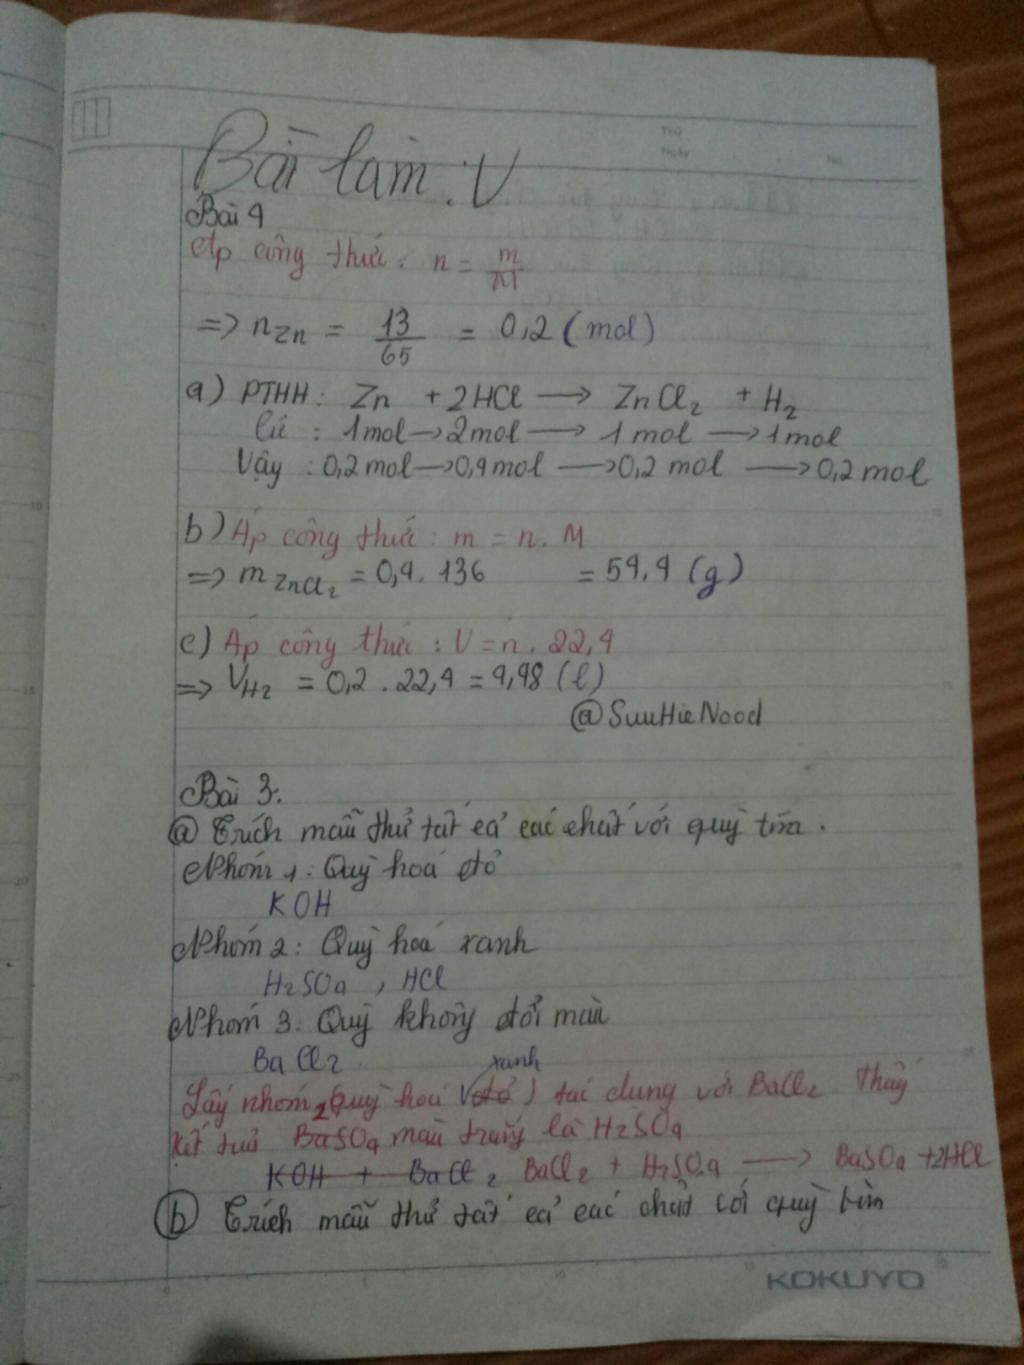 Thứ
Ngày No.
Bài làm: V
Bài 4
Áp công thức: n = m/M
=> nZn = 13/65 = 0,2 (mol)
a) PTHH: Zn + 2HCl → ZnCl2 + H2
Cứ : 1mol → 2mol → 1 mol → 1mol
Vậy : 0,2 mol → 0,4 mol → 0,2 mol → 0,2 mol
b) Áp công thức: m = n. M
=> mZnCl2 = 0,4. 136 = 54,4 (g)
c) Áp công thức: V = n. 22,4
=> VH2 = 0,2 . 22,4 = 4,48 (l)
@SuuHieNood
Bài 3:
a Trích mẫu thử tất cả các chất với quỳ tím.
Nhóm 1: Quỳ hoá đỏ
KOH
Nhóm 2: Quỳ hoá xanh
H2SO4, HCl
Nhóm 3: Quỳ không đổi màu
BaCl2
xanh
Lấy nhóm 2 (quỳ hoá đỏ) tác dung với BaCl2 thấy
kết tủa BaSO4 màu trắng là H2SO4
KOH + BaCl2 BaCl2 + H2SO4 → BaSO4 + 2HCl
b Trích mẫu thử tất cả các chất với quỳ tím
KOKUYO